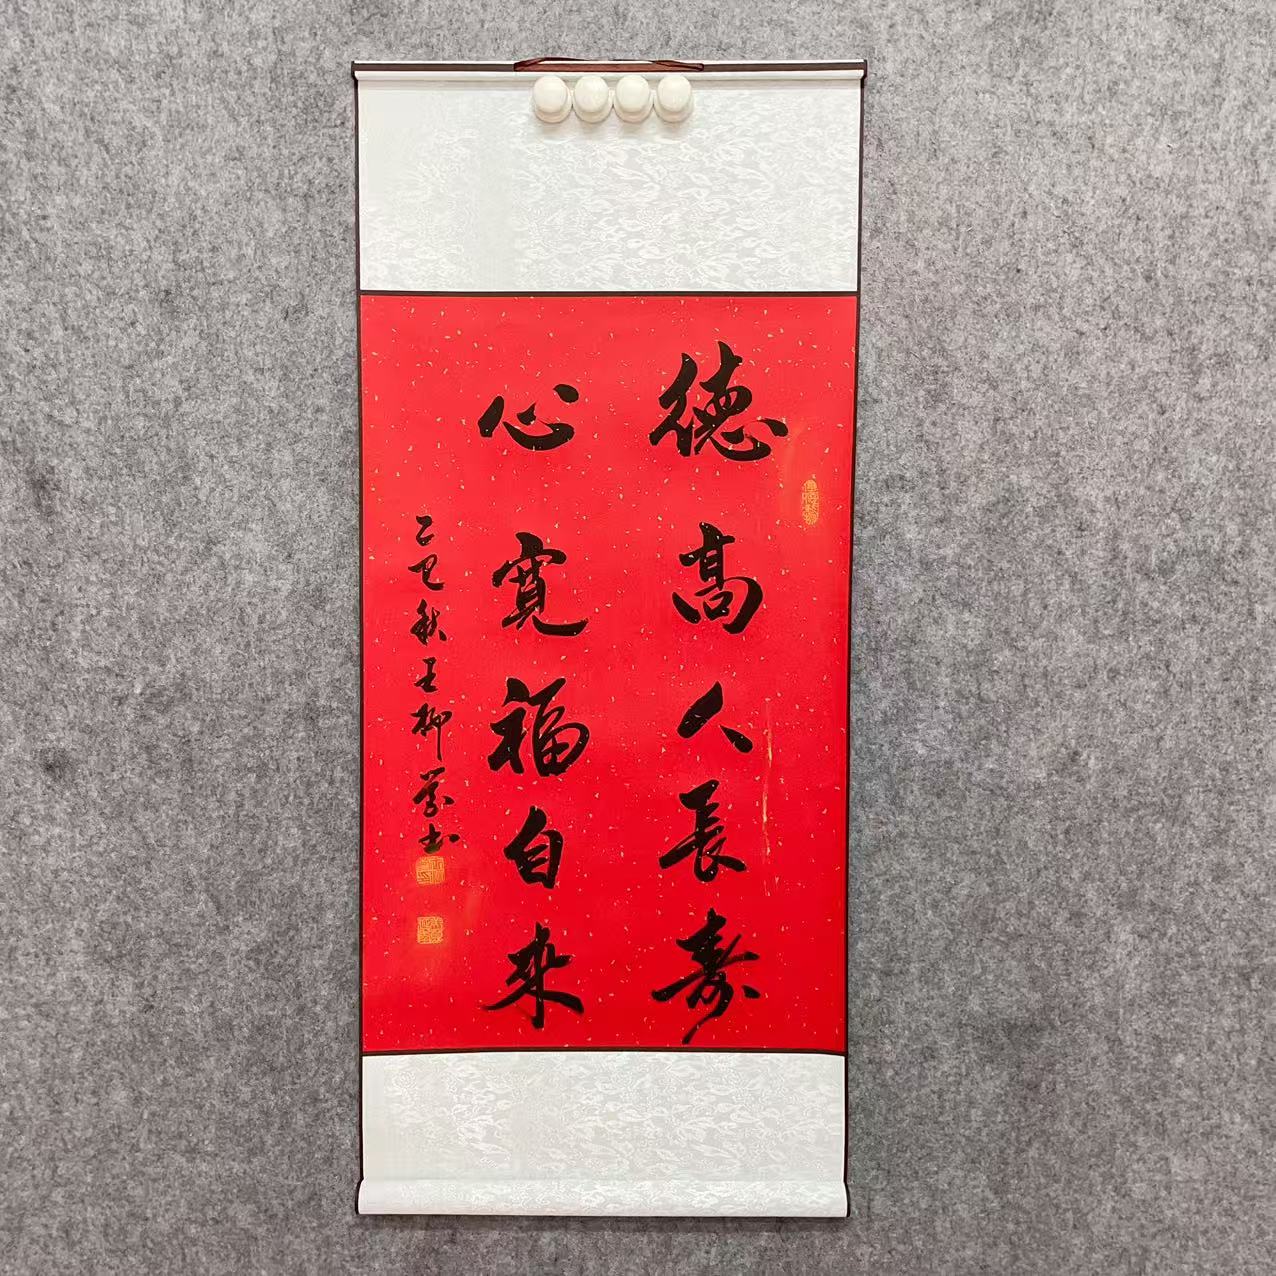 德高人長壽
心寬福自来
乙巳秋王柳芳书